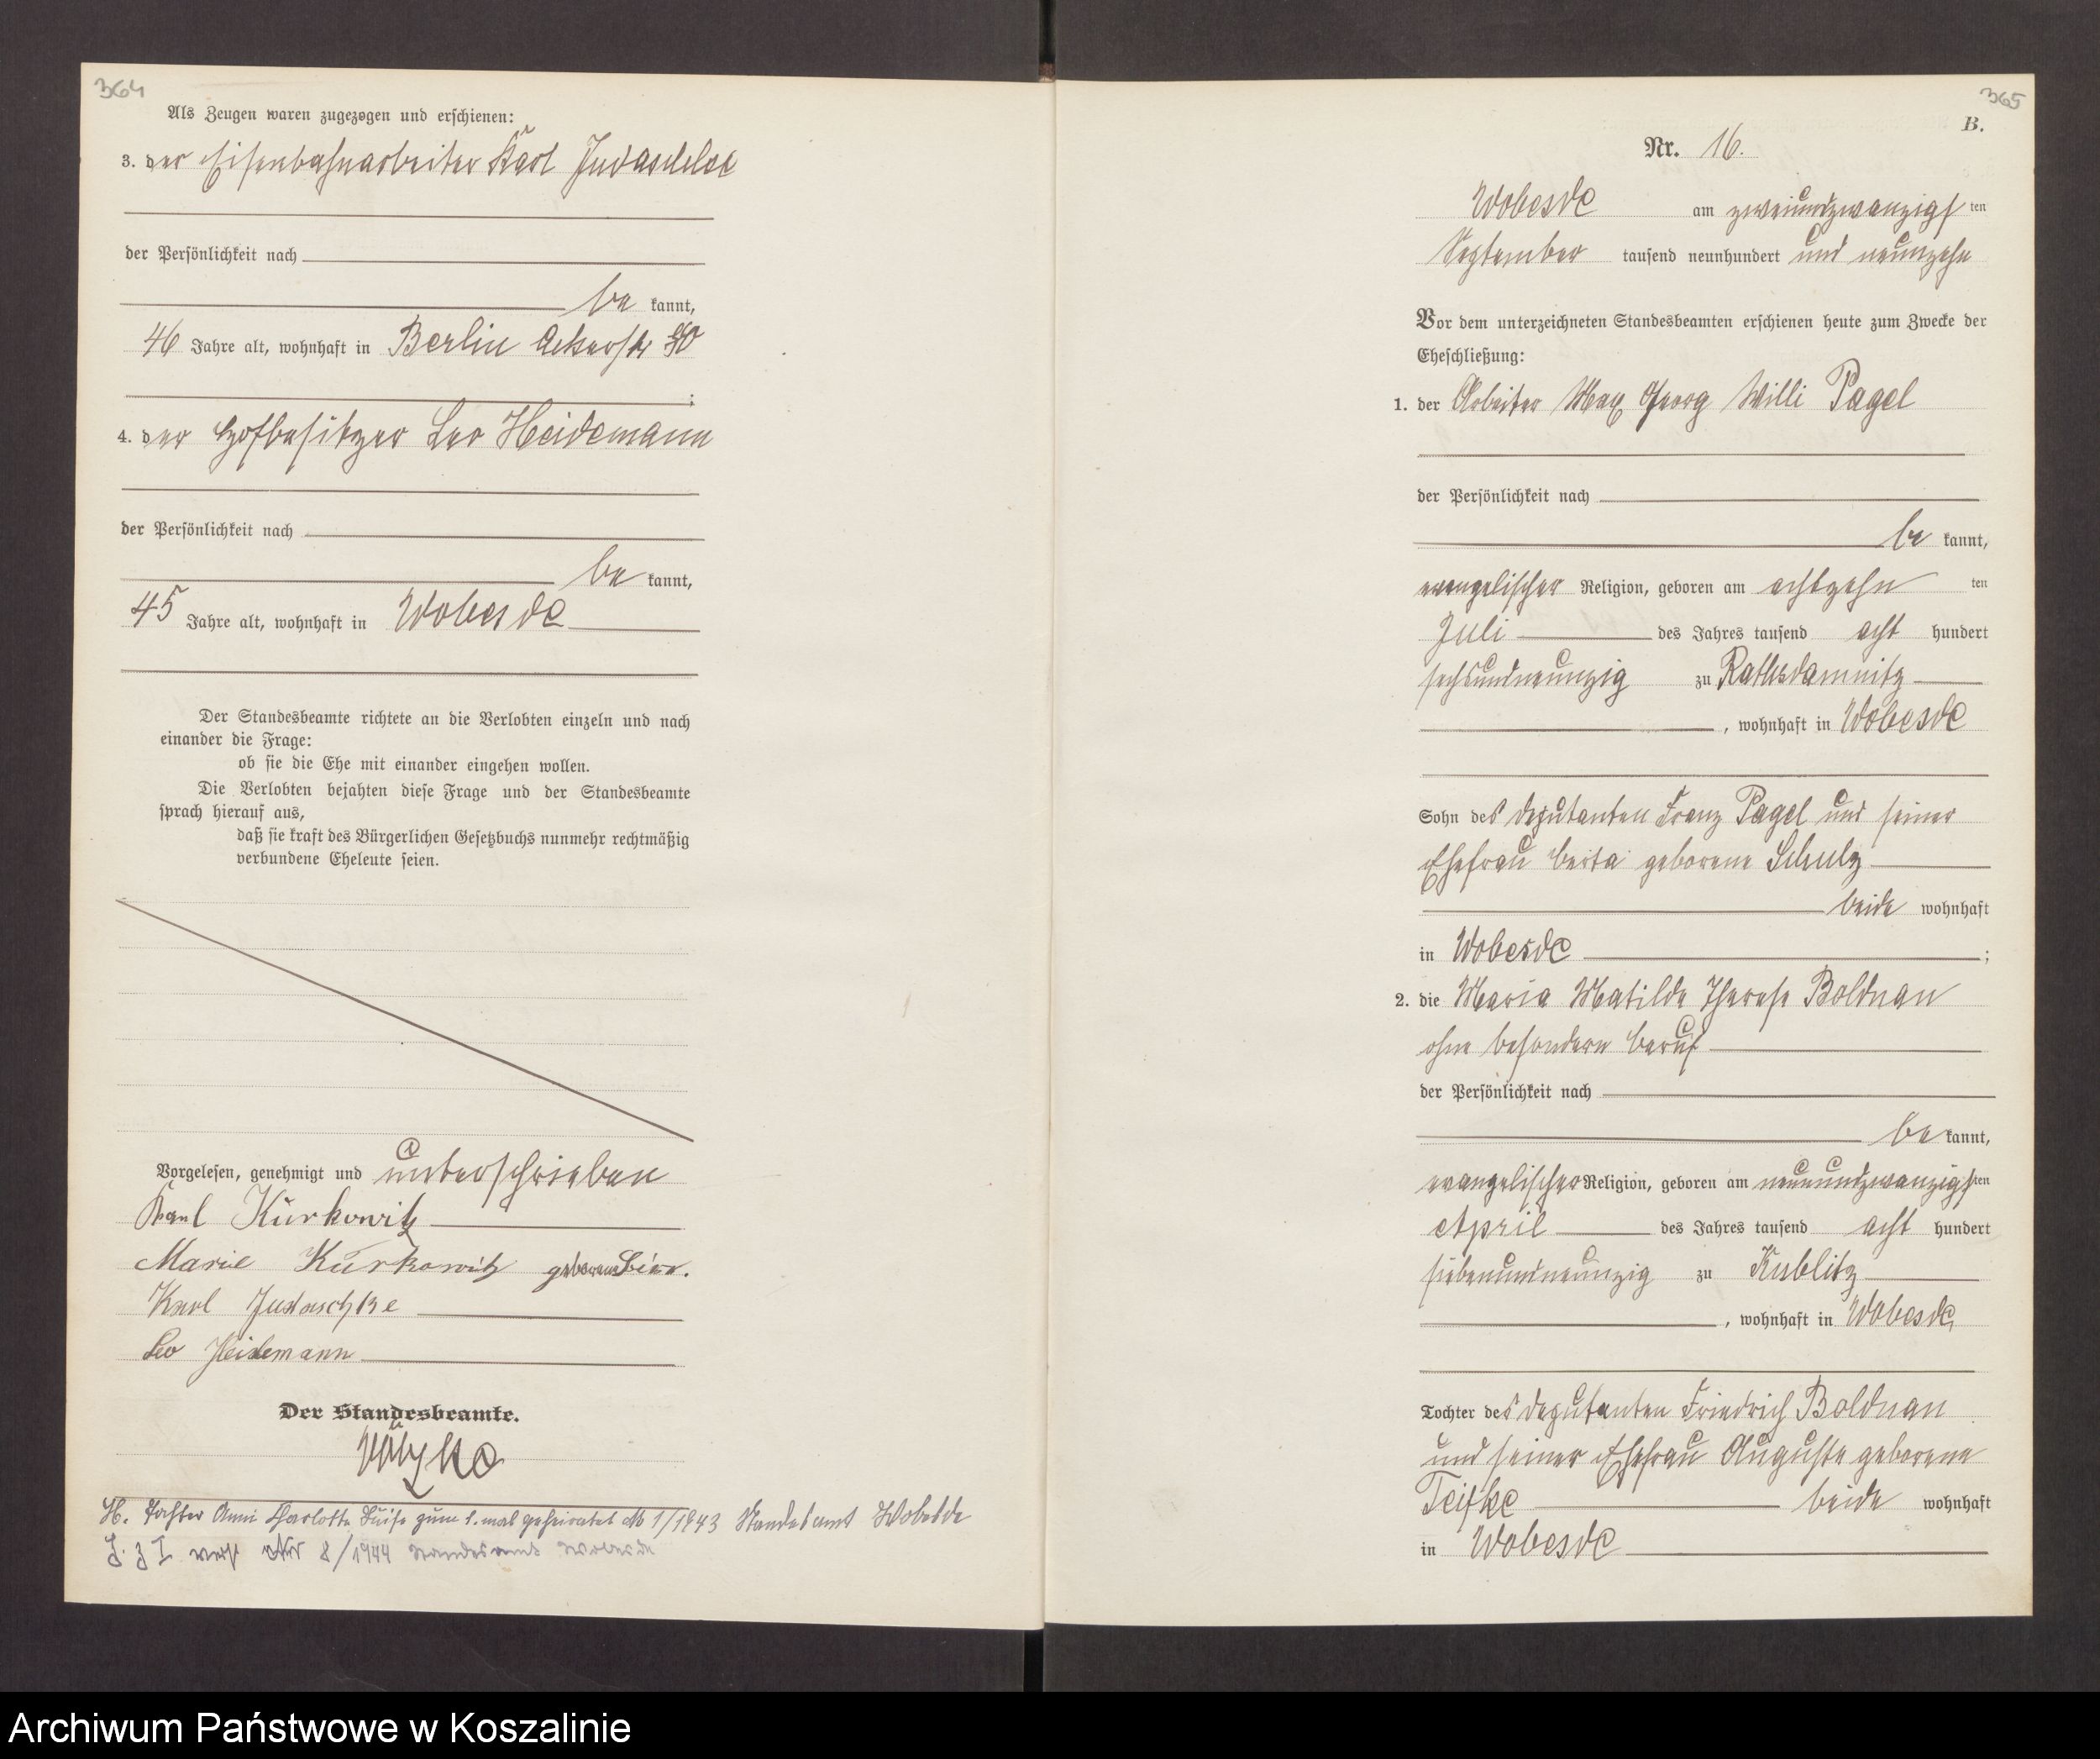 364
Als Zeugen waren zugezogen und erschienen:
3. der Eisenbahnarbeiter Karl Judaschke
der Persönlichkeit nach
be kannt,
46 Jahre alt, wohnhaft in Berlin Ackerstr
;
4. der Hofbesitzer Leo Heidemann
der Persönlichkeit nach
be kannt,
45 Jahre alt, wohnhaft in Wobesde
Der Standesbeamte richtete an die Verlobten einzeln und nach
einander die Frage:
ob sie die Ehe mit einander eingehen wollen.
Die Verlobten bejahten diese Frage und der Standesbeamte
sprach hierauf aus,
daß sie kraft des Bürgerlichen Gesetzbuchs nunmehr rechtmäßig
verbundene Eheleute seien.
Vorgelesen, genehmigt und unterschrieben
Karl Kurkowitz
Marie Kurkowitz geborene
Karl Judaschke
Leo Heidemann
Der Standesbeamte.
H. Tochter Anni Charlotte Luise zum 1. mal geheiratet No 1/1943 Standesamt Wobesde
Nr 8/1944 Standesamt Wobesde
365
B.
Nr. 16.
Wobesde am zweiundzwanzigsten
September tausend neunhundert und neunzehn
Vor dem unterzeichneten Standesbeamten erschienen heute zum Zwecke der
Eheschließung:
1. der Arbeiter Max Georg Willi Pagel
der Persönlichkeit nach
be kannt,
evangelischer Religion, geboren am achtzehn ten
Juli des Jahres tausend acht hundert
sechsundneunzig zu Rathsdamnitz
, wohnhaft in Wobesde
Sohn des Deputanten Franz Pagel und seiner
Ehefrau Berta geborene Schulz
beide wohnhaft
in Wobesde ;
2. die Maria Matilde Therese Boldnan
ohne besondern Beruf
der Persönlichkeit nach
be kannt,
evangelischer Religion, geboren am neunundzwanzigsten
April des Jahres tausend acht hundert
siebenundneunzig zu Kublitz
, wohnhaft in Wobesde,
Tochter des Deputanten Friedrich Boldnan
und seiner Ehefrau Auguste geborene
Teifke beide wohnhaft
in Wobesde
Archiwum Państwowe w Koszalinie